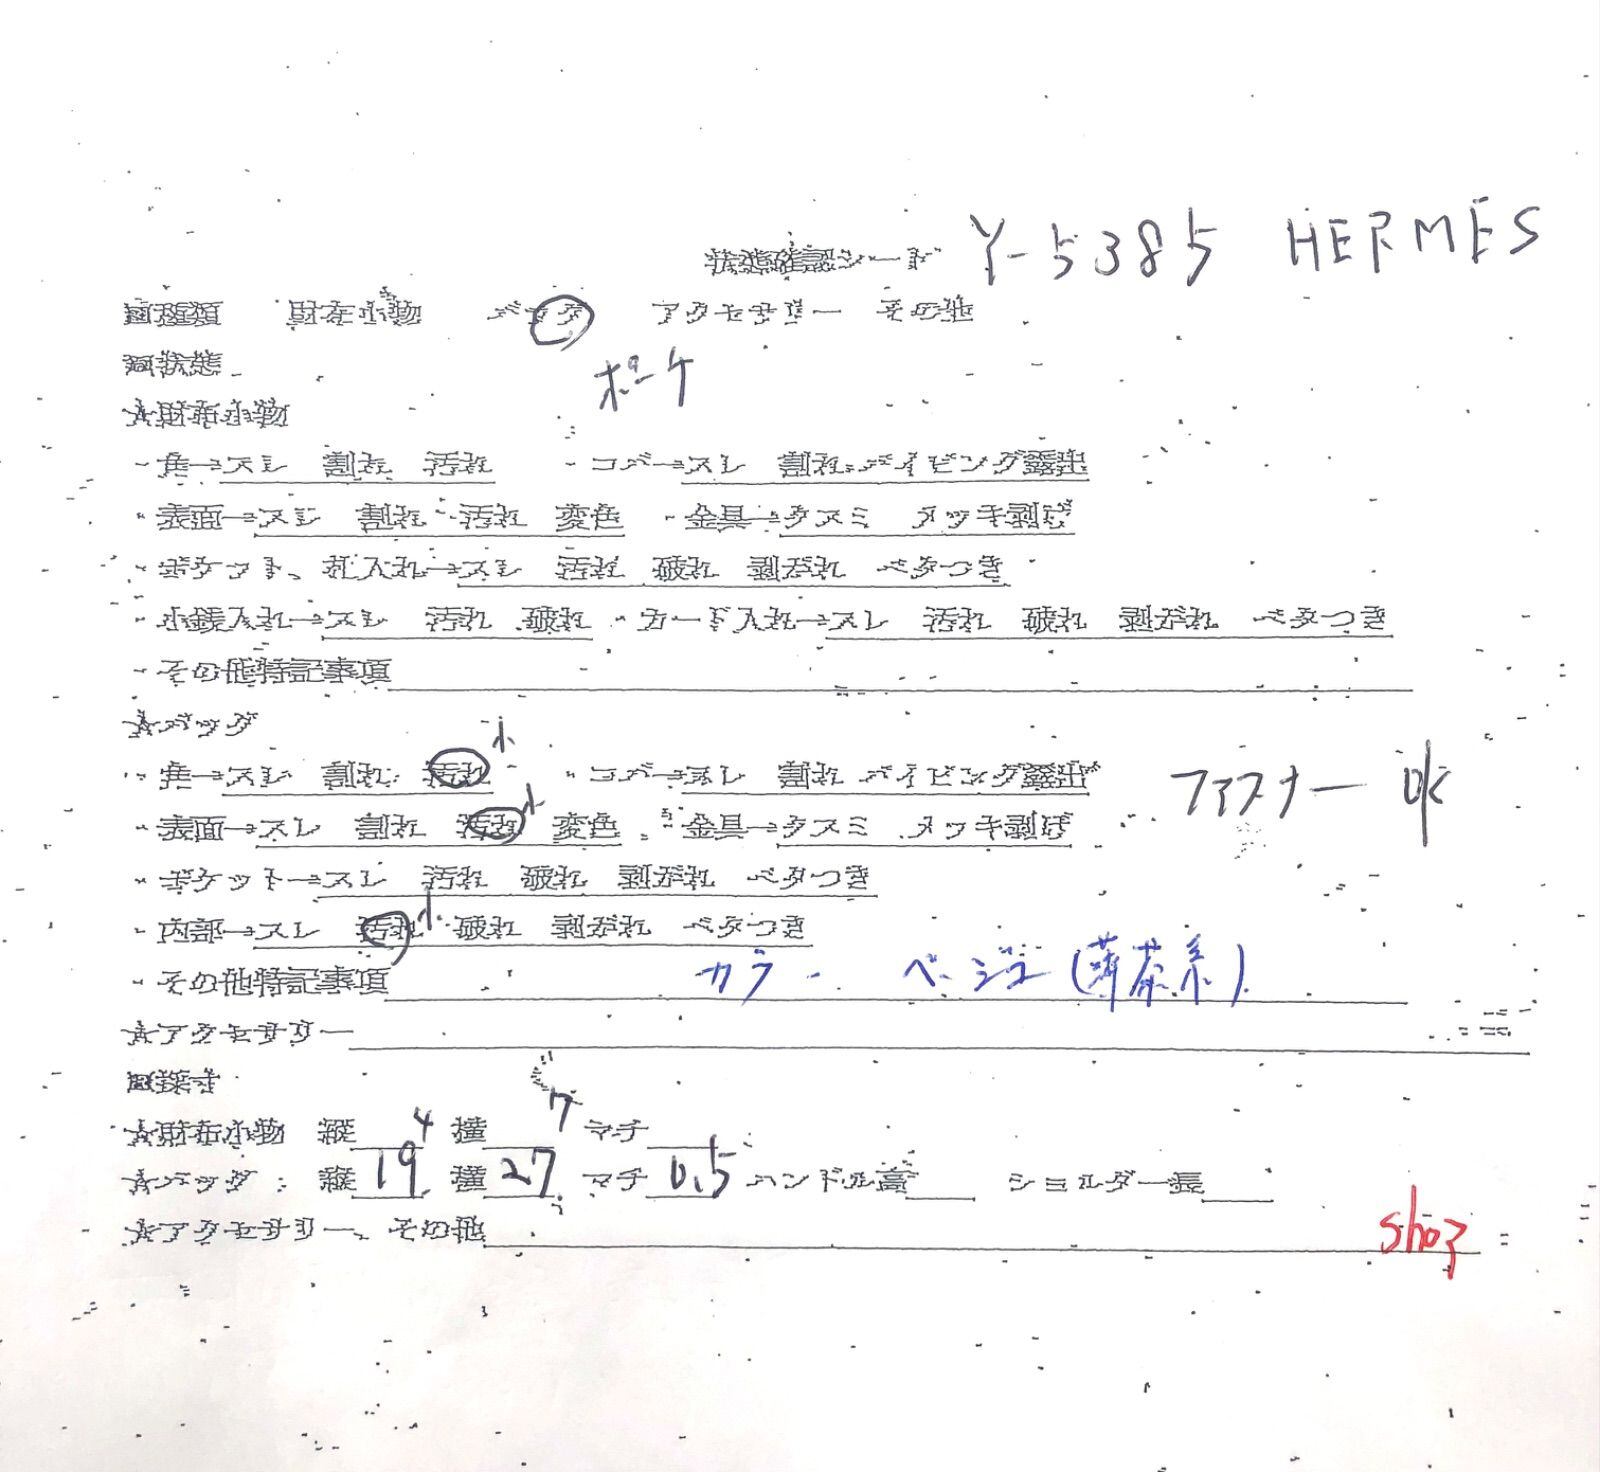 状態確認シート Y-5385 HERMES
□種類 財布小物 バッグ アクセサリー その他
□状態 ポーチ
★財布小物
・角→スレ 割れ 汚れ ・コバ→スレ 割れ パイピング露出
・表面→スレ 割れ 汚れ 変色 ・金具→クスミ メッキ剥げ
・ポケット、札入れ→スレ 汚れ 破れ 剥がれ ベタつき
・小銭入れ→スレ 汚れ 破れ ・カード入れ→スレ 汚れ 破れ 剥がれ ベタつき
・その他特記事項
★バッグ
・角→スレ 割れ 汚れ 小 ・コバ→スレ 割れ パイピング露出 ファスナー ok
・表面→スレ 割れ 汚れ 小 変色 ・金具→クスミ メッキ剥げ
・ポケット→スレ 汚れ 破れ 剥がれ ベタつき
・内部→スレ 汚れ 小 破れ 剥がれ ベタつき
・その他特記事項 カラー ベージュ(薄茶系)
★アクセサリー
□採寸
★財布小物 縦 4 横 7 マチ
★バッグ 縦 19 横 27 マチ 0.5 ハンドル高 ショルダー長
★アクセサリー、その他